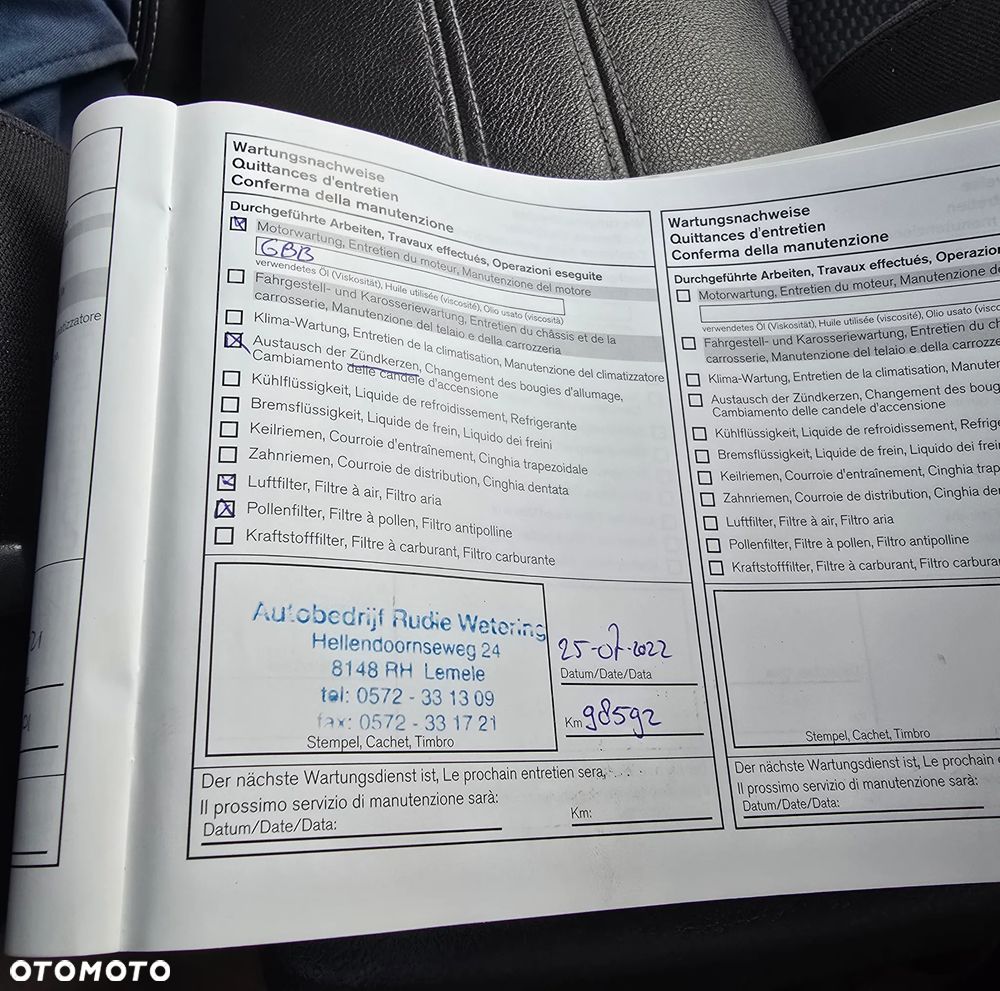 Wartungsnachweise
Quittances d'entretien
Conferma della manutenzione
Durchgeführte Arbeiten, Travaux effectués, Operazioni eseguite
Motorwartung, Entretien du moteur, Manutenzione del motore
GBB
verwendetes Öl (Viskosität), Huile utilisée (viscosité), Olio usato (viscosità)
Fahrgestell- und Karosseriewartung, Entretien du châssis et de la
carrosserie, Manutenzione del telaio e della carrozzeria
Klima-Wartung, Entretien de la climatisation, Manutenzione del climatizzatore
Austausch der Zündkerzen, Changement des bougies d'allumage,
Cambiamento delle candele d'accensione
Kühlflüssigkeit, Liquide de refroidissement, Refrigerante
Bremsflüssigkeit, Liquide de frein, Liquido dei freini
Keilriemen, Courroie d'entraînement, Cinghia trapezoidale
Zahnriemen, Courroie de distribution, Cinghia dentata
Luftfilter, Filtre à air, Filtro aria
Pollenfilter, Filtre à pollen, Filtro antipolline
Kraftstofffilter, Filtre à carburant, Filtro carburante
Autobedrijf Rudie Wetering
Hellendoornseweg 24
8148 RH Lemele
tel: 0572 - 33 13 09
fax: 0572 - 33 17 21
Stempel, Cachet, Timbro
25-07-2022
Datum/Date/Data
Km 98592
Der nächste Wartungsdienst ist, Le prochain entretien sera,
Il prossimo servizio di manutenzione sarà:
Datum/Date/Data:
Km:
Wartungsnachweise
Quittances d'entretien
Conferma della manutenzione
Durchgeführte Arbeiten, Travaux effectués, Operazion
Motorwartung, Entretien du moteur, Manutenzione de
verwendetes Öl (Viskosität), Huile utilisée (viscosité), Olio usato (visco
Fahrgestell- und Karosseriewartung, Entretien du c
carrosserie, Manutenzione del telaio e della carrozze
Klima-Wartung, Entretien de la climatisation, Manuten
Austausch der Zündkerzen, Changement des boug
Cambiamento delle candele d'accensione
Kühlflüssigkeit, Liquide de refroidissement, Refrige
Bremsflüssigkeit, Liquide de frein, Liquido dei frein
Keilriemen, Courroie d'entraînement, Cinghia trap
Zahnriemen, Courroie de distribution, Cinghia de
Luftfilter, Filtre à air, Filtro aria
Pollenfilter, Filtre à pollen, Filtro antipolline
Kraftstofffilter, Filtre à carburant, Filtro carbura
Stempel, Cachet, Timbro
Der nächste Wartungsdienst ist, Le prochain e
Il prossimo servizio di manutenzione sarà:
Datum/Date/Data:
atizzatore
OTOMOTO